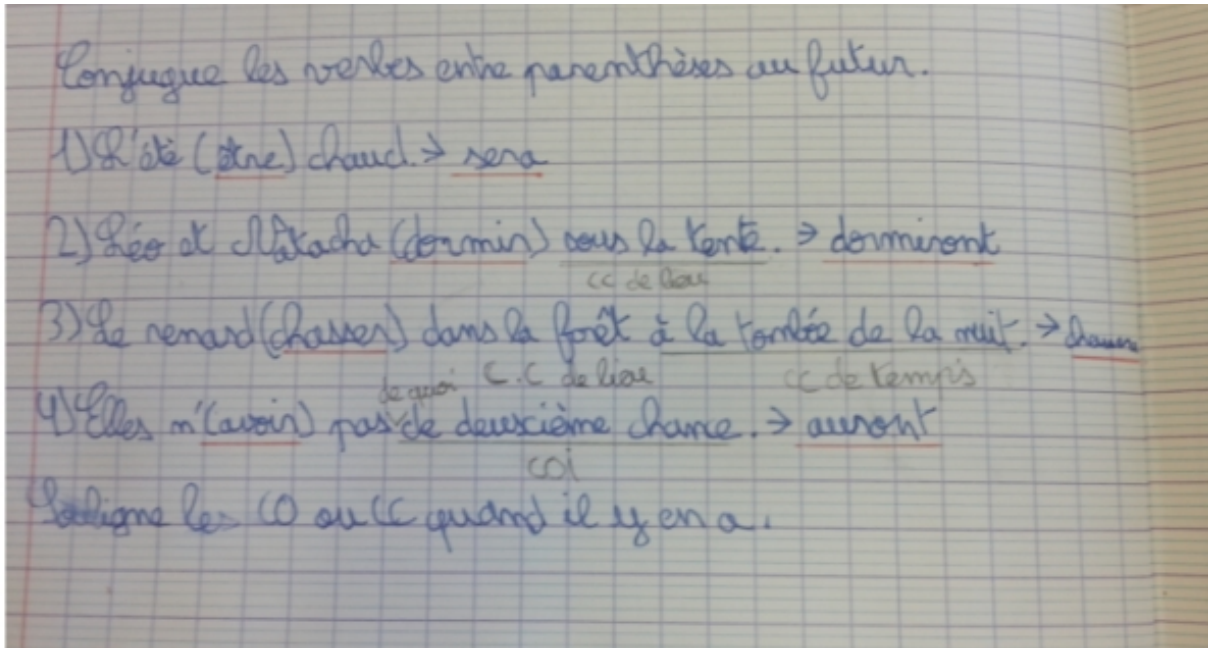 Conjugue les verbes entre parenthèses au futur.
1) L'été (être) chaud. → sera
2) Léo et Natacha (dormir) sous la tente. → dormiront
cc de lieu
3) Le renard (chasser) dans la forêt à la tombée de la nuit. →
de quoi C.C de lieu cc de temps
4) Elles n'(avoir) pas de deuxième chance. → auront
coi
Souligne les CO ou CC quand il y en a.